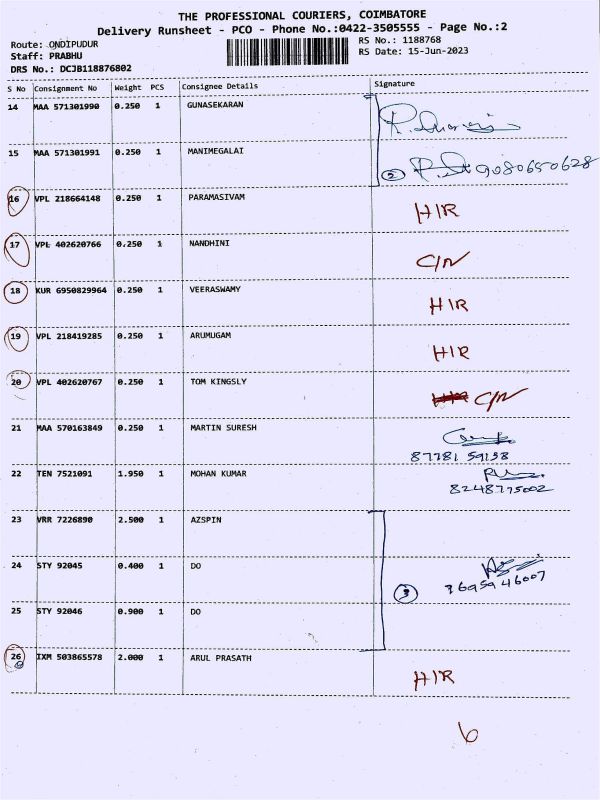 THE PROFESSIONAL COURIERS, COIMBATORE
Delivery Runsheet - PCO - Phone No.:0422-3505555 - Page No.:2
Route: ONDIPUDUR
RS No.: 1188768
Staff: PRABHU
RS Date: 15-Jun-2023
DRS No.: DCJB118876802
S No Consignment No Weight PCS Consignee Details Signature
14 MAA 571301990 0.250 1 GUNASEKARAN
15 MAA 571301991 0.250 1 MANIMEGALAI 2 9080650628
16 VPL 218664148 0.250 1 PARAMASIVAM H/R
17 VPL 402620766 0.250 1 NANDHINI C/N
18 KUR 6950829964 0.250 1 VEERASWAMY H/R
19 VPL 218419285 0.250 1 ARUMUGAM H/R
20 VPL 402620767 0.250 1 TOM KINGSLY C/N
21 MAA 570163849 0.250 1 MARTIN SURESH
87781 59158
22 TEN 7521091 1.950 1 MOHAN KUMAR
8248775002
23 VRR 7226890 2.500 1 AZSPIN
24 STY 92045 0.400 1 DO
3 7695946007
25 STY 92046 0.900 1 DO
26 IXM 503865578 2.000 1 ARUL PRASATH H/R
6